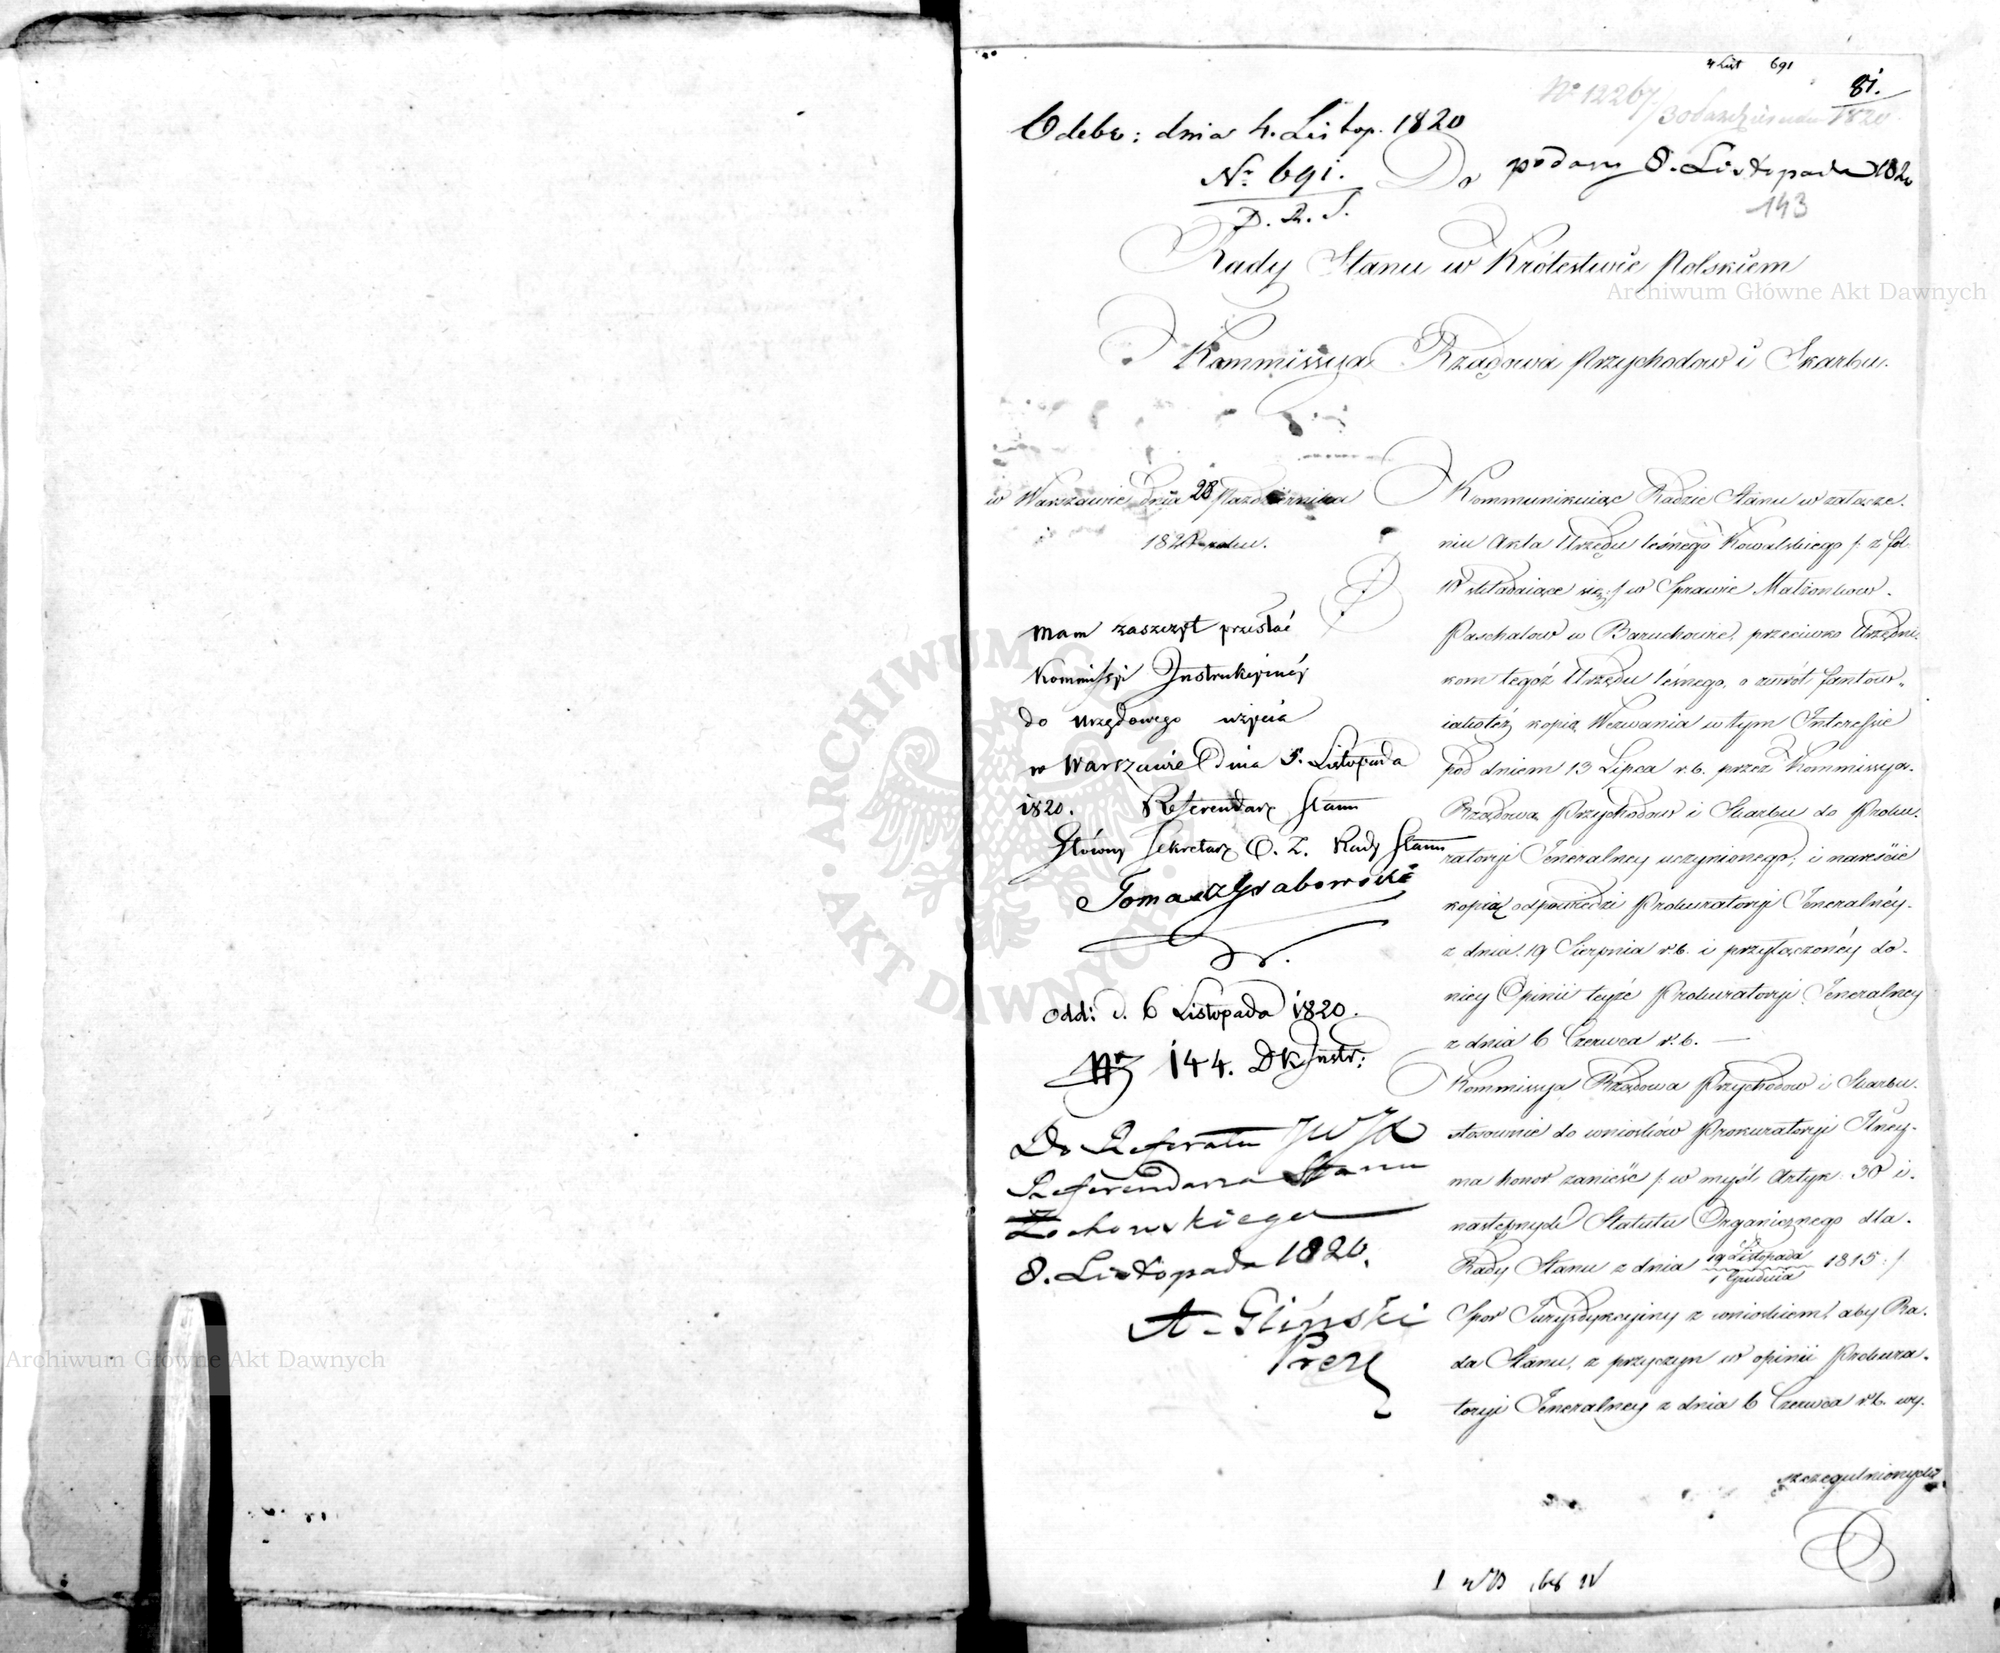 4 List 691
81.
No 12267/30 Października 1820
Odebr: dnia 4. Listop. 1820
No 691.
D. R. S.
Do
podany 8. Listopada 1820
143
Rady Stanu w Królestwie Polskiem
Archiwum Główne Akt Dawnych
Kommissya Rządowa Przychodow i Skarbu.
w Warszawie dnia 28 Października
1820 roku.
Mam zaszczyt przesłać
Kommissyi Instrukcyinéy
do urzędowego użycia
w Warszawie Dnia 5. Listopada
1820. Referendarz Stanu
Główny Sekretarz O. Z. Rady Stanu
Tomasz Grabowski
odd: d. 6 Listopada 1820.
Nr 144. DKInstr:
Do Referatu JW
Referendarza Stanu
Żochowskiego
8. Listopada 1820.
A. Gliński
Prez
Kommunikuiąc Radzie Stanu w załącze-
niu Akta Urzędu leśnego Kowalskiego /: z fol.
składaiące się :/ w Sprawie Małżonkow
Paschalow w Baruchowie, przeciwko Urzędni-
kom tegoż Urzędu leśnego, o zwrót fantow,
iakoteż kopią Wezwania w tym Interessie
pod dniem 13 Lipca r. b. przez Kommissyą
Rządową Przychodow i Skarbu do Proku-
ratoryi Jeneralney uczynionego; i nareście
kopią odpowiedzi Prokuratoryi Jeneralnéy
z dnia 19 Sierpnia r. b. i przyłączonéy do
niey Opinii teyże Prokuratoryi Jeneralney
z dnia 6 Czerwca r. b. —
Kommissya Rządowa Przychodow i Skarbu
stosownie do wniosków Prokuratoryi Jlney
ma honor zanieść /: w myśl Artyk: 30 i
następnych Statutu Organicznego dla
Rady Stanu z dnia 19 Listopada / 1 Grudnia 1815 :/
Spor Jurysdykcyiny z wnioskiem, aby Ra-
da Stanu, z przyczyn w opinii Prokura-
toryi Jeneralney z dnia 6 Czerwca r. b. wy-
szczegulnionych
Archiwum Główne Akt Dawnych
ARCHIWUM GŁÓWNE AKT DAWNYCH